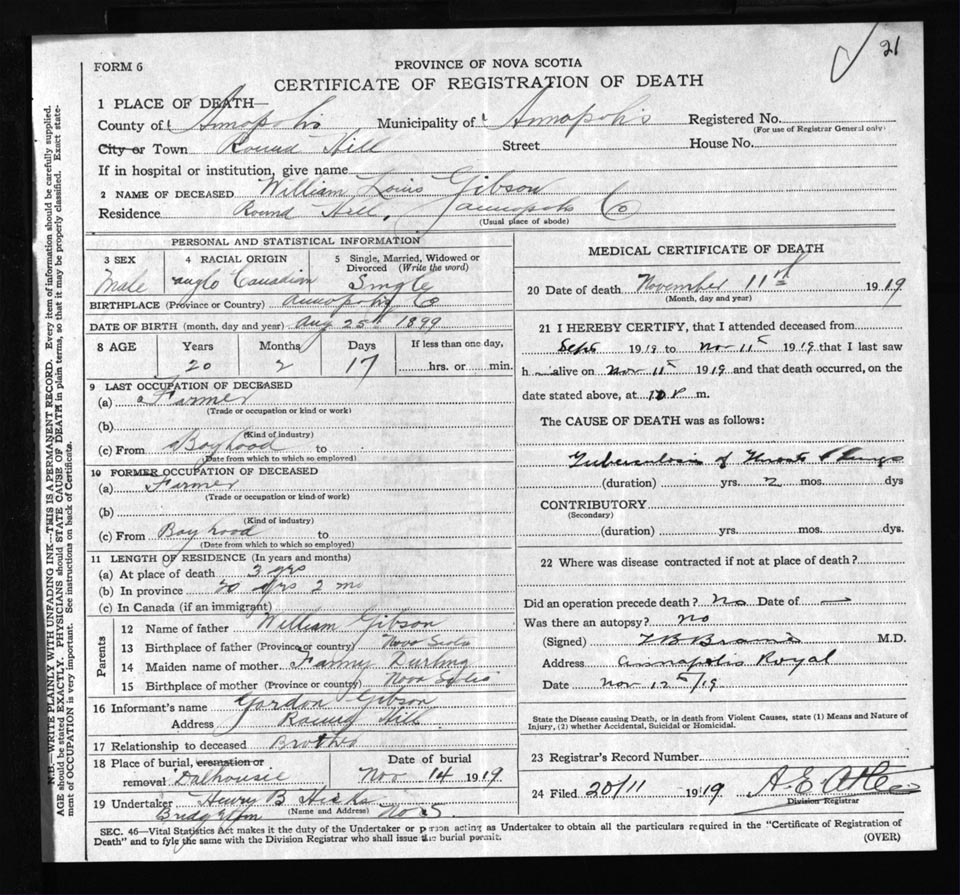 21
FORM 6
PROVINCE OF NOVA SCOTIA
CERTIFICATE OF REGISTRATION OF DEATH
1 PLACE OF DEATH—
County of Annapolis Municipality of Annapolis Registered No.
(For use of Registrar General only)
City or Town Round Hill Street House No.
If in hospital or institution, give name
2 NAME OF DECEASED William Louis Gibson
Residence Round Hill, Annapolis Co
(Usual place of abode)
PERSONAL AND STATISTICAL INFORMATION
3 SEX 4 RACIAL ORIGIN 5 Single, Married, Widowed or Divorced (Write the word)
Male Anglo Canadian Single
BIRTHPLACE (Province or Country) Annapolis Co
DATE OF BIRTH (month, day and year) Aug 25th 1899
8 AGE Years Months Days If less than one day,
20 2 17 hrs. or min.
9 LAST OCCUPATION OF DECEASED
(a) a Farmer
(Trade or occupation or kind or work)
(b)
(Kind of industry)
(c) From Boyhood to
(Date from which to which so employed)
10 FORMER OCCUPATION OF DECEASED
(a) Farmer
(Trade or occupation or kind of work)
(b)
(Kind of industry)
(c) From Boyhood to
(Date from which to which so employed)
11 LENGTH OF RESIDENCE (In years and months)
(a) At place of death 3 yrs
(b) In province 20 yrs 2 mo
(c) In Canada (if an immigrant)
Parents
12 Name of father William Gibson
13 Birthplace of father (Province or country) Nova Scotia
14 Maiden name of mother Fanny Durling
15 Birthplace of mother (Province or country) Nova Scotia
16 Informant's name Gordon Gibson
Address Round Hill
17 Relationship to deceased Brother
18 Place of burial, cremation or removal Dalhousie Date of burial Nov 14 1919
19 Undertaker Henry B Hicks
(Name and Address)
Bridgetown N.S.
MEDICAL CERTIFICATE OF DEATH
20 Date of death November 11th 1919
(Month, day and year)
21 I HEREBY CERTIFY, that I attended deceased from
Sept 1919 to Nov 11th 1919 that I last saw
h alive on Nov 11th 1919 and that death occurred, on the
date stated above, at P m.
The CAUSE OF DEATH was as follows:
Tuberculosis of Throat & Lungs
(duration) yrs. 2 mos. dys
CONTRIBUTORY
(Secondary)
(duration) yrs. mos. dys.
22 Where was disease contracted if not at place of death?
Did an operation precede death? No Date of —
Was there an autopsy? No
(Signed) M.D.
Address Annapolis Royal
Date Nov 12th/19
State the Disease causing Death, or in death from Violent Causes, state (1) Means and Nature of
Injury, (2) whether Accidental, Suicidal or Homicidal.
23 Registrar's Record Number
24 Filed 20/11 1919 A. E.
Division Registrar
SEC. 46—Vital Statistics Act makes it the duty of the Undertaker or person acting as Undertaker to obtain all the particulars required in the "Certificate of Registration of
Death" and to fyle the same with the Division Registrar who shall issue the burial permit.
(OVER)
N.B.—WRITE PLAINLY WITH UNFADING INK—THIS IS A PERMANENT RECORD. Every item of information should be carefully supplied.
AGE should be stated EXACTLY. PHYSICIANS should STATE CAUSE OF DEATH in plain terms, so that it may be properly classified. Exact state-
ment of OCCUPATION is very important. See instructions on back of Certificate.